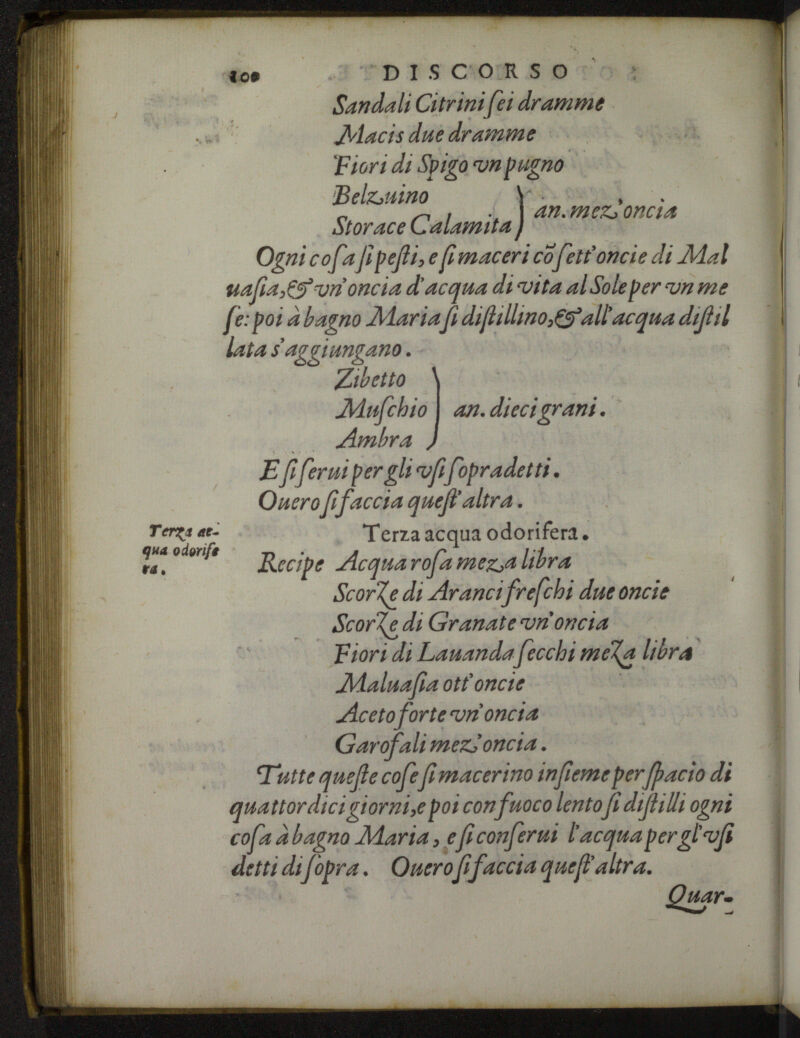 100 DISCORSO
Sandali Citrini ſei dramme
Macis due dramme
Fiori di Spigo vn pugno
Belzuino
Storace Calamita } an. mez'oncia
Ogni coſa ſi peſti, e ſi maceri cō ſett'oncie di Mal
uaſia, & vn'oncia d'acqua di vita al Sole per vn me
ſe: poi à bagno Maria ſi diſtillino, & all'acqua diſtil
lata s'aggiungano.
Zibetto
Muſchio } an. dieci grani.
Ambra
E ſi ſerui per gli vſi ſopradetti.
Ouero ſi faccia queſt'altra.
Terza ac-
qua odorife
ra.
Terza acqua odorifera.
Recipe Acqua roſa meza libra
Scorze di Aranci freſchi due oncie
Scorze di Granate vn'oncia
Fiori di Lauanda ſecchi meza libra
Maluaſia ott'oncie
Aceto forte vn'oncia
Garofali mez'oncia.
Tutte queſte coſe ſi macerino inſieme per ſpacio di
quattordici giorni, e poi con fuoco lento ſi diſtilli ogni
coſa à bagno Maria, e ſi conſerui l'acqua per gl'vſi
detti di ſopra. Ouero ſi faccia queſt'altra.
Quar-